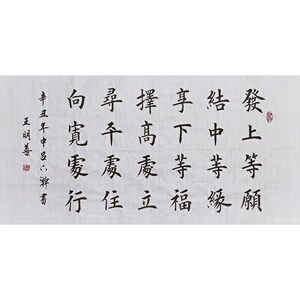 發上等願
結中等緣
享下等福
擇高處立
尋平處住
向寬處行
辛丑年中呂六翰書
王明善